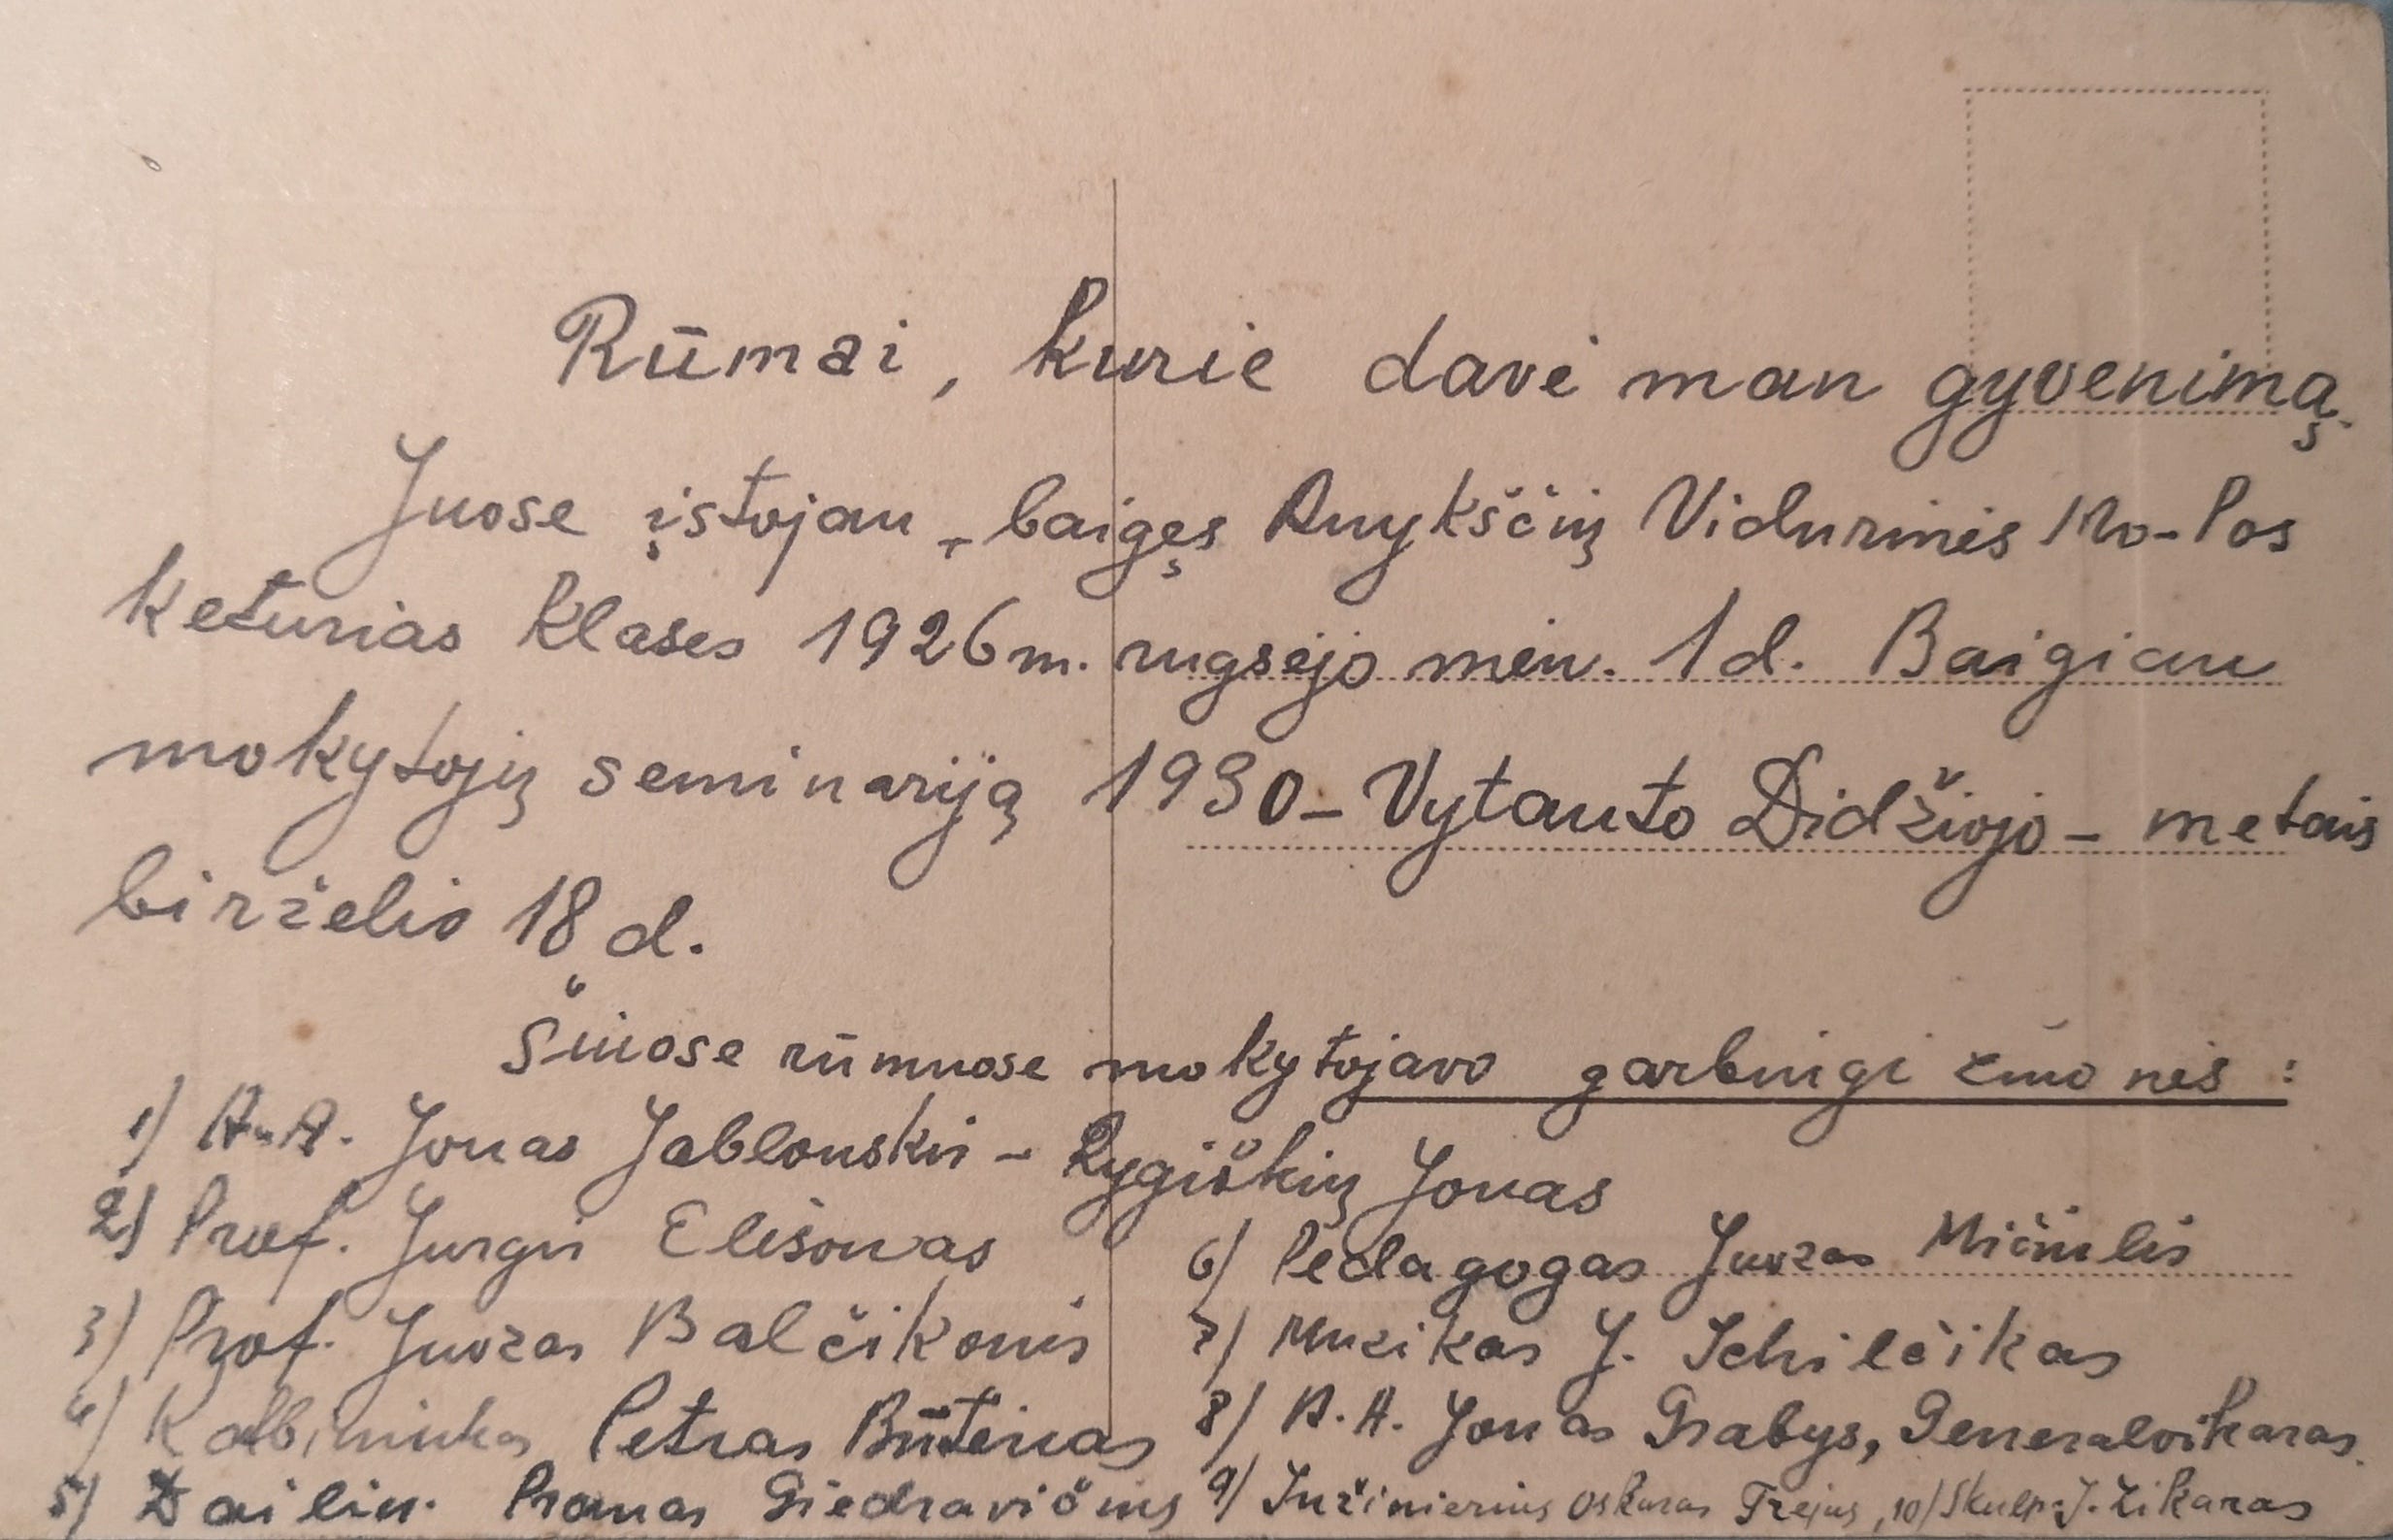 Rūmai, kurie davė man gyvenimą.
Juose įstojau, baigęs Anykščių Vidurinės Mo-los
keturias klases 1926 m. rugsėjo mėn. 1 d. Baigiau
mokytojų seminariją 1930 – Vytauto Didžiojo – metais
birželio 18 d.
Šiuose rūmuose mokytojavo garbingi žmonės:
1) A.A. Jonas Jablonskis – Rygiškių Jonas
2) Prof. Jurgis Elisonas
3) Prof. Juozas Balčikonis
4) Kalbininkas Petras Būtėnas
5) Dailin. Pranas Giedravičius
6) Pedagogas Juozas Mičiulis
7) Muzikas J.
8) A.A. Jonas Grabys, Generalvikaras.
9) Inžinierius Oskaras Trejus, 10) Skulp. J. Zikaras